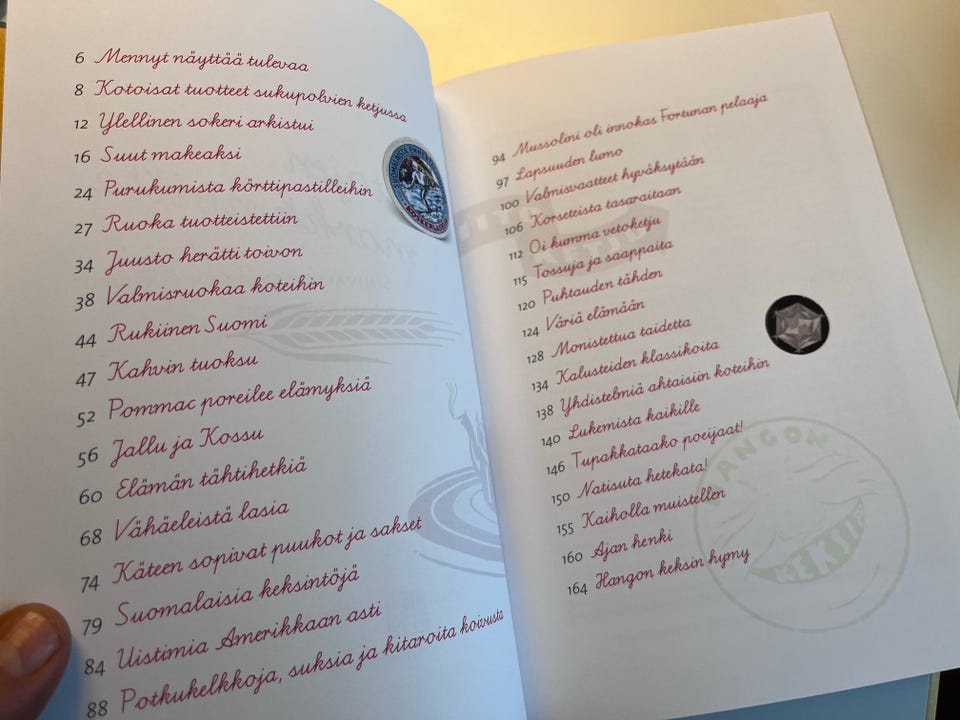 6 Mennyt näyttää tulevaa
8 Kotoisat tuotteet sukupolvien ketjussa
12 Ylellinen sokeri arkistui
16 Suut makeaksi
24 Purukumista körttipastilleihin
27 Ruoka tuotteistettiin
34 Juusto herätti toivon
38 Valmisruokaa koteihin
44 Rukiinen Suomi
47 Kahvin tuoksu
52 Pommac poreilee elämyksiä
56 Jallu ja Kossu
60 Elämän tähtihetkiä
68 Vähäeleistä lasia
74 Käteen sopivat puukot ja sakset
79 Suomalaisia keksintöjä
84 Uistimia Amerikkaan asti
88 Potkukelkkoja, suksia ja kitaroita koivusta
94 Mussolini oli innokas Fortunan pelaaja
97 Lapsuuden lumo
100 Valmisvaatteet hyväksytään
106 Korseteista tasaraitaan
112 Oi kumma vetoketju
115 Tossuja ja saappaita
120 Puhtauden tähden
124 Väriä elämään
128 Monistettua taidetta
134 Kalusteiden klassikoita
138 Yhdistelmiä ahtaisiin koteihin
140 Lukemista kaikille
146 Tupakkataako poeijaat!
150 Natisuta hetekata!
155 Kaiholla muistellen
160 Ajan henki
164 Hangon keksin hymy
HANGON
KEKSI